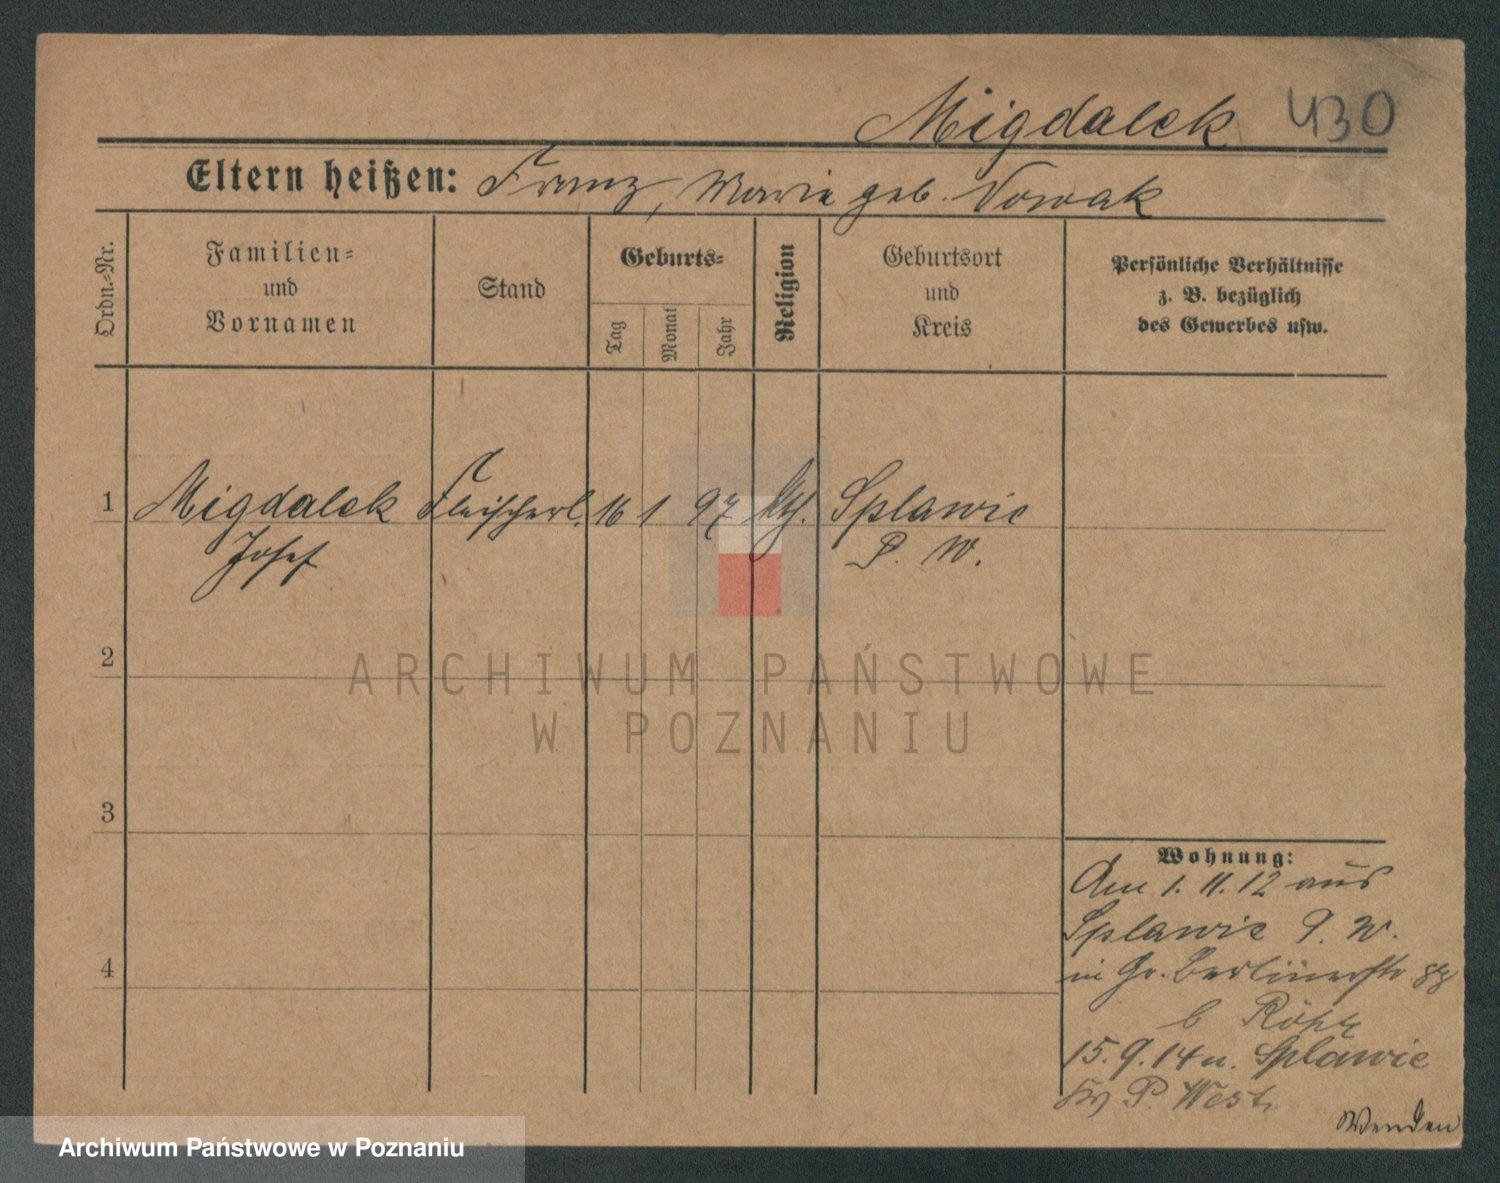 Migdalek 430
Eltern heißen: Franz, Marie geb. Nowak
Ordn.=Nr.
Familien=
und
Vornamen
Stand
Geburts=
Tag
Monat
Jahr
Religion
Geburtsort
und
Kreis
Persönliche Verhältnisse
z. B. bezüglich
des Gewerbes usw.
1 Migdalek Fleischerl. 16 1 97 kth. Splawie
Josef P. W.
2
ARCHIWUM PAŃSTWOWE
W POZNANIU
3
Wohnung:
Am 1. 11. 12 aus
Splawie P. W.
4
in Gr. Berlinerstr. 88
b Röhr
15. 9. 14 n. Splawie
P. West.
Wenden
Archiwum Państwowe w Poznaniu